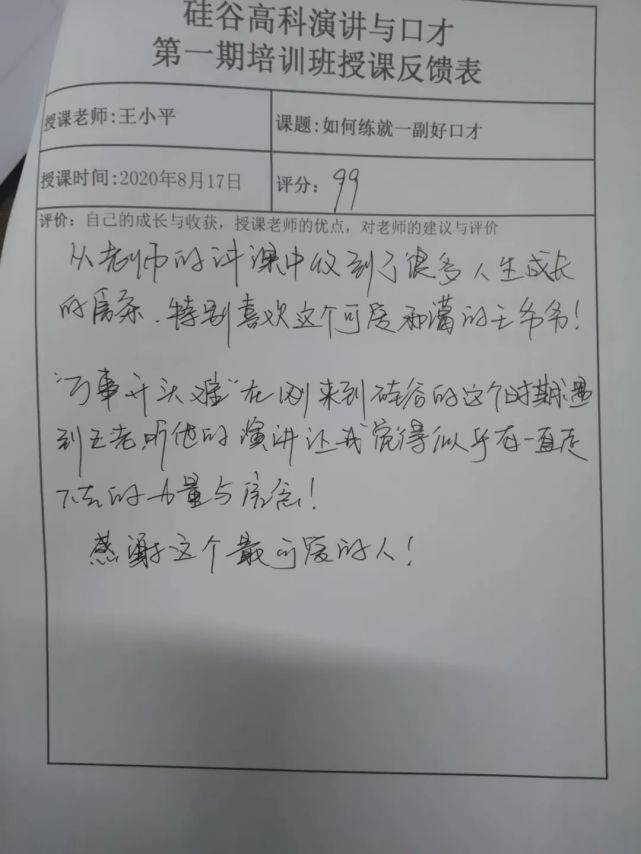 硅谷高科演讲与口才
第一期培训班授课反馈表
授课老师:王小平
课题:如何练就一副好口才
授课时间:2020年8月17日
评分: 99
评价: 自己的成长与收获，授课老师的优点，对老师的建议与评价
从老师的讲课中收到了很多人生成长
的启示、特别喜欢这个可爱和蔼的王爷爷!
"万事开头难"在刚来到硅谷的这个时期遇
到王老师他的演讲让我觉得似乎有一直走
下去的力量与信念!
感谢这个最可爱的人!